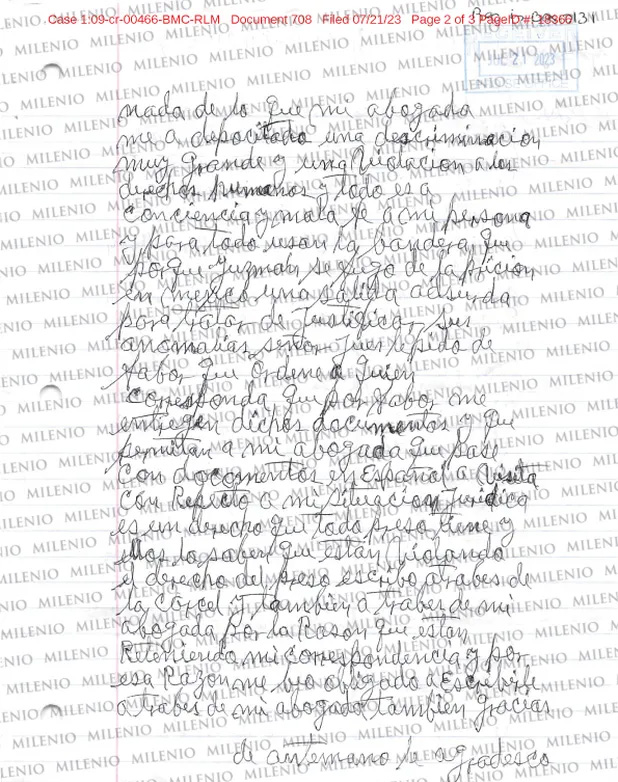 Case 1:09-cr-00466-BMC-RLM Document 708 Filed 07/21/23 Page 2 of 3 PageID #:
JUL 21 2023
MILENIO
nada de lo que mi abogada
me a depocitado una descriminacion
muy grande y una Violacion a los
derechos humanos y todo es a
conciencia y mala fe a mi persona
y para todo usan la bandera que
porque Guzman se fugo de la pricion
en mexico una salida adsurda
para tratar de Justificar sus
anomalias señor Jues le pido de
fabor que Ordene a quien
Corresponda que por fabor me
entregen dichos documentos y que
permitan a mi abogada que pase
Con documentos en Español a Visita
Con Repecto a mi situacion Juridica
es un derecho que todo preso tiene y
ellos lo saben que estan Violando
el derecho del preso escribo a trabes de
la Carcel y tambien a traber de mi
abogada por la Rason que estan
Reteniendo mi correspondencia y por
esa Razon me beo obligado a Escribirle
a trabes de mi abogada tambien gracias
de antemano le agradesco